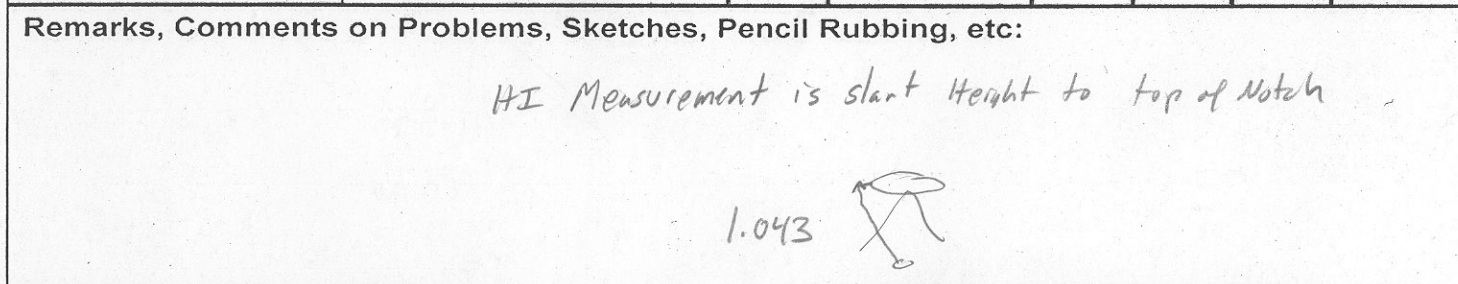 Remarks, Comments on Problems, Sketches, Pencil Rubbing, etc:
HI Measurement is slant Height to top of Notch
1.043